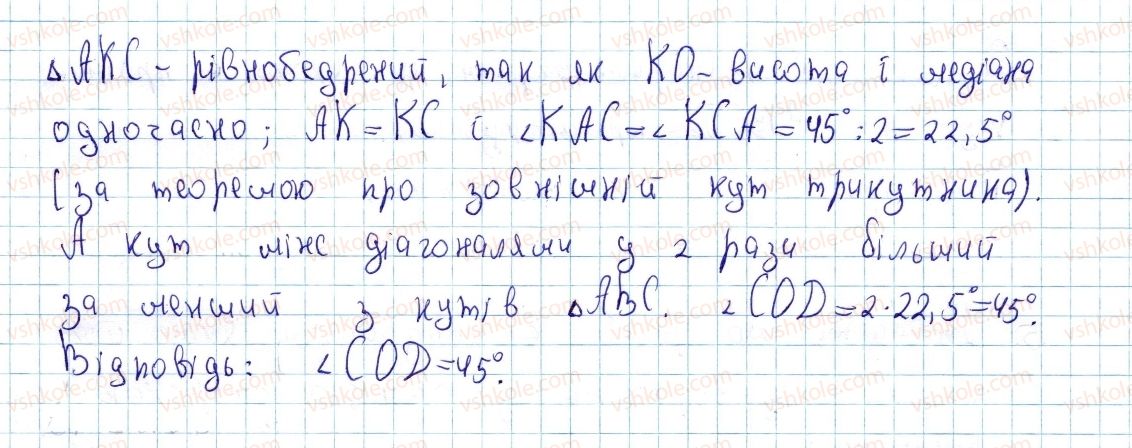 △AKC - рівнобедрений, так як KO - висота і медіана
одночасно; AK = KC і ∠KAC = ∠KCA = 45° : 2 = 22,5°
(за теоремою про зовнішній кут трикутника).
А кут між діагоналями у 2 рази більший
за менший з кутів △ABC. ∠COD = 2·22,5° = 45°.
Відповідь: ∠COD = 45°.